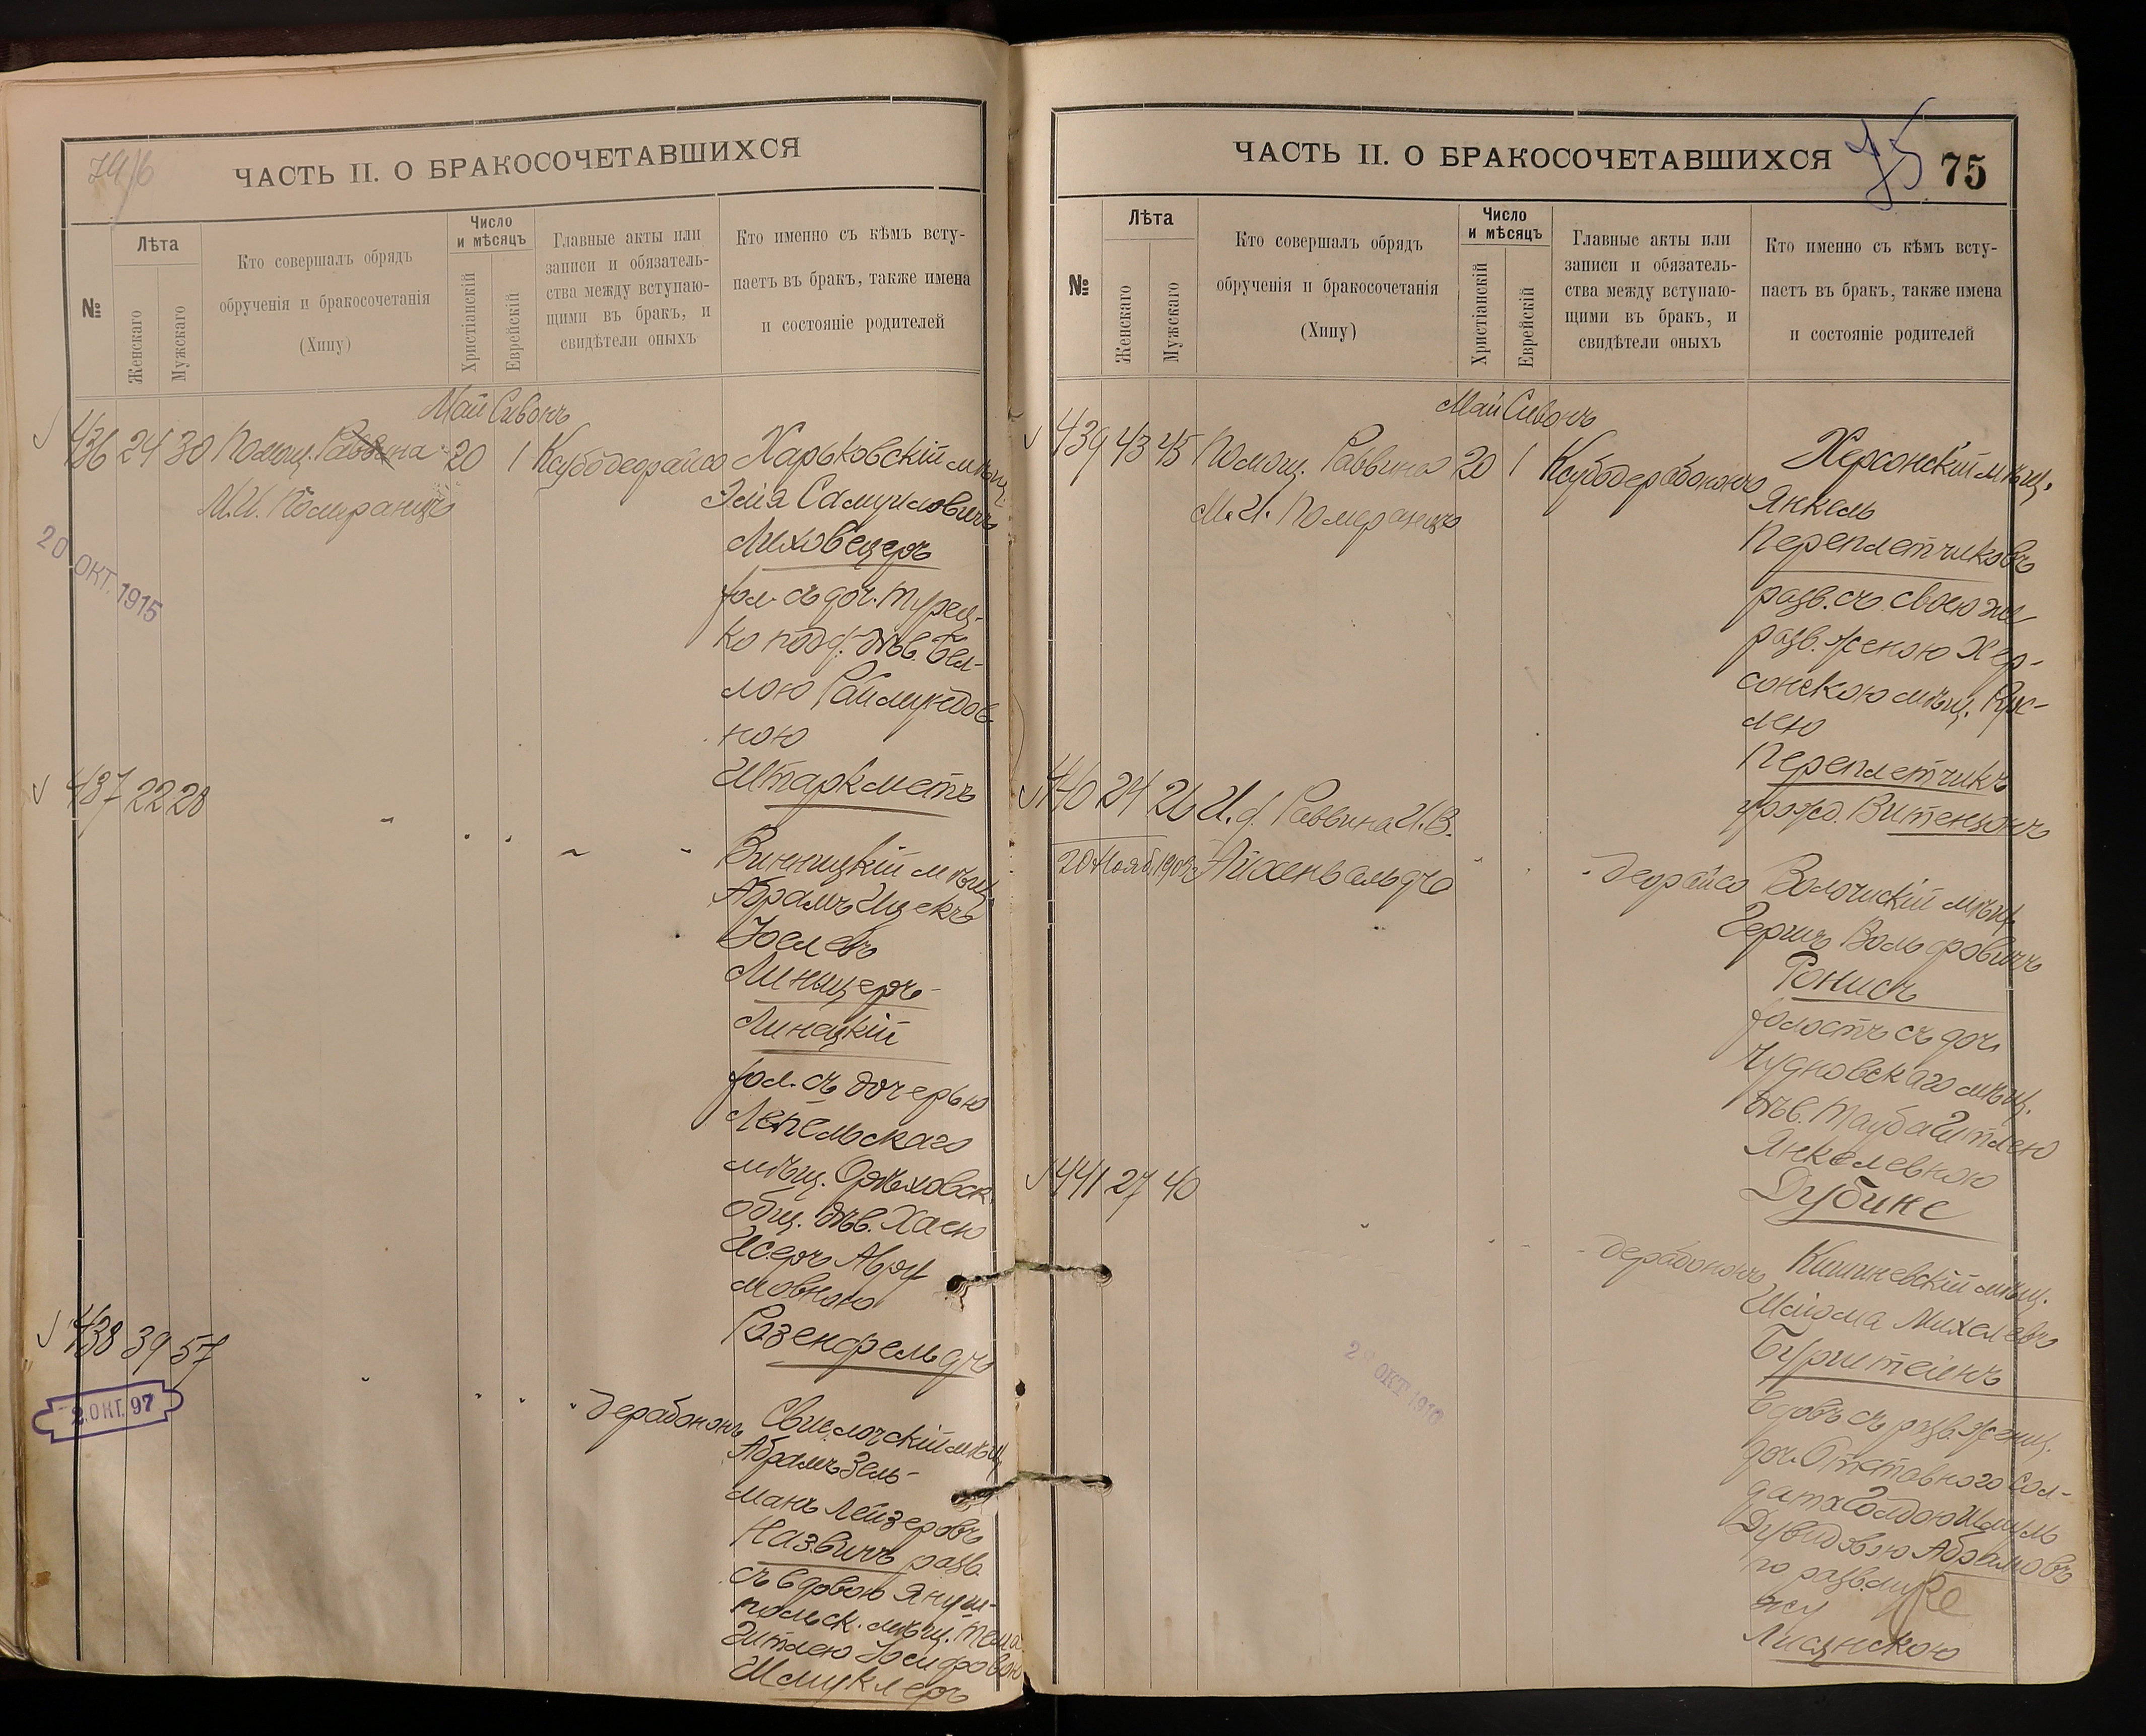 74/об
ЧАСТЬ II. О БРАКОСОЧЕТАВШИХСЯ
№
Лѣта
Женскаго
Мужскаго
Кто совершалъ обрядъ
обрученія и бракосочетанія
(Хипу)
Число
и мѣсяцъ
Христіанскій
Еврейскій
Главные акты или
записи и обязатель-
ства между вступаю-
щими въ бракъ, и
свидѣтели оныхъ
Кто именно съ кѣмъ всту-
паетъ въ бракъ, также имена
и состояніе родителей
Май Сивонъ
436 24 30 Помощ. Раввина 20 1 Ксубо деорайсо Харьковскій мѣщ.
М.И. Померанцъ
Элія Самуиловичъ
Лиховецеръ
хол. съ доч. турец-
коподд. дѣв. Бел-
лою Раймундов-
ною
Штаркметъ
20 ОКТ. 1915
437 22 28
Винницкій мѣщ.
Абрамъ Ицекъ
Іослевъ
Линицеръ-
Линецкій
хол. съ дочерью
Лепельскаго
мѣщ. Орѣховск.
общ. дѣв. Хаею
Исеръ Авру
мовною
Розенфельдъ
438 39 57
2. ОКТ. 97
дерабононъ Свислочскій мѣщ.
Абрамъ Зель-
манъ Лейзеровъ
Назвичъ разв.
съ вдовою Януш-
польск. мѣщ.
Гитлею Іосифовою
Шмуклеръ
ЧАСТЬ II. О БРАКОСОЧЕТАВШИХСЯ
75
75
№
Лѣта
Женскаго
Мужскаго
Кто совершалъ обрядъ
обрученія и бракосочетанія
(Хипу)
Число
и мѣсяцъ
Христіанскій
Еврейскій
Главные акты или
записи и обязатель-
ства между вступаю-
щими въ бракъ, и
свидѣтели оныхъ
Кто именно съ кѣмъ всту-
паетъ въ бракъ, также имена
и состояніе родителей
Май Сивонъ
439 43 45 Помощ. Раввина 20 1 Ксубо дерабононъ Херсонскій мѣщ.
М. И. Померанцъ
Янкель
Переплетчиковъ
разв. съ свою же
разв. женою Хер-
сонскою мѣщ.
лею
Переплетчикъ
урожд. Витензонъ
440 24 26 И. д. Раввина И.В.
Айхенвальдъ
деорайсо Волочискій мѣщ.
Гершъ Вольфовичъ
Ронисъ
холостъ съ доч.
Чудновскаго мѣщ.
дѣв. Тауба Гитлею
Янкелевною
Дубинс
441 27 40
дерабононъ Кишиневскій мѣщ.
Шлйома Михелевъ
Бурштейнъ
вдовъ съ разв. женщ.
доч. Отставного сол-
дата Голдою Шмуль
Дувидовою Абрамовъ
по разв. мужу
Лисянскою